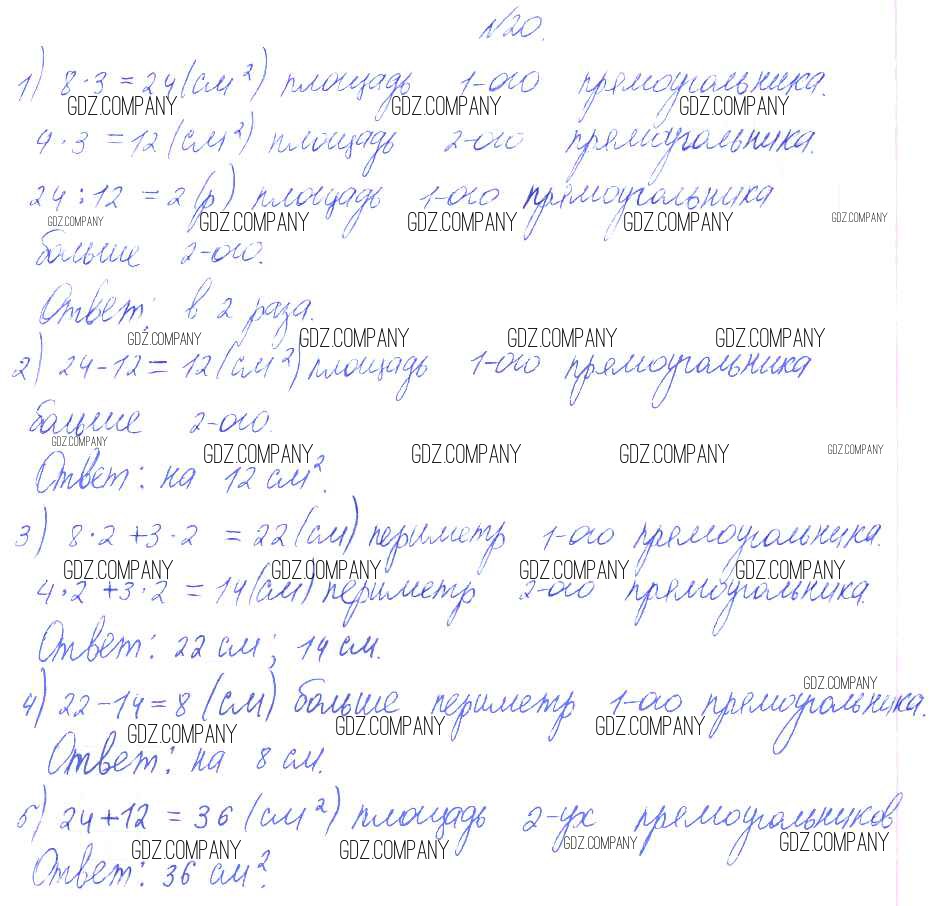 N20.
1) 8·3=24(см²) площадь 1-ого прямоугольника.
GDZ.COMPANY GDZ.COMPANY GDZ.COMPANY
4·3=12(см²) площадь 2-ого прямоугольника.
24:12=2(р) площадь 1-ого прямоугольника
GDZ.COMPANY GDZ.COMPANY GDZ.COMPANY GDZ.COMPANY GDZ.COMPANY
больше 2-ого.
Ответ: в 2 раза.
GDZ.COMPANY GDZ.COMPANY GDZ.COMPANY GDZ.COMPANY
2) 24-12=12(см²) площадь 1-ого прямоугольника
больше 2-ого.
GDZ.COMPANY GDZ.COMPANY GDZ.COMPANY GDZ.COMPANY GDZ.COMPANY
Ответ: на 12 см².
3) 8·2+3·2=22(см) периметр 1-ого прямоугольника.
GDZ.COMPANY GDZ.COMPANY GDZ.COMPANY GDZ.COMPANY
4·2+3·2=14(см) периметр 2-ого прямоугольника.
Ответ: 22 см; 14 см.
GDZ.COMPANY
4) 22-14=8(см) больше периметр 1-ого прямоугольника.
GDZ.COMPANY GDZ.COMPANY GDZ.COMPANY
Ответ: на 8 см.
5) 24+12=36(см²) площадь 2-ух прямоугольников
GDZ.COMPANY GDZ.COMPANY GDZ.COMPANY GDZ.COMPANY
Ответ: 36 см².